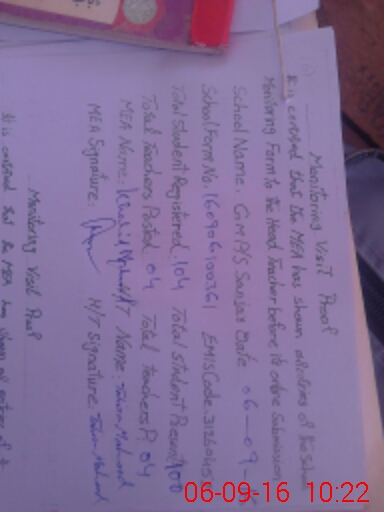 Monitoring Visit Proof
It is certified that the MEA has shown all entries of the School
Monitoring Form to the Head Teacher before its online Submission
School Name: GMPS Date 06-09-
School Form No. 160906100361 EMIS Code. 3126045
Total Student Registered. 104 Total student Present 100
Total Teachers Posted. 04 Total teachers P. 04
MEA Name: H/T Name:
MEA Signature: H/T Signature:
Monitoring Visit Proof
It is certified that the MEA has shown all entries of
06-09-16 10:22